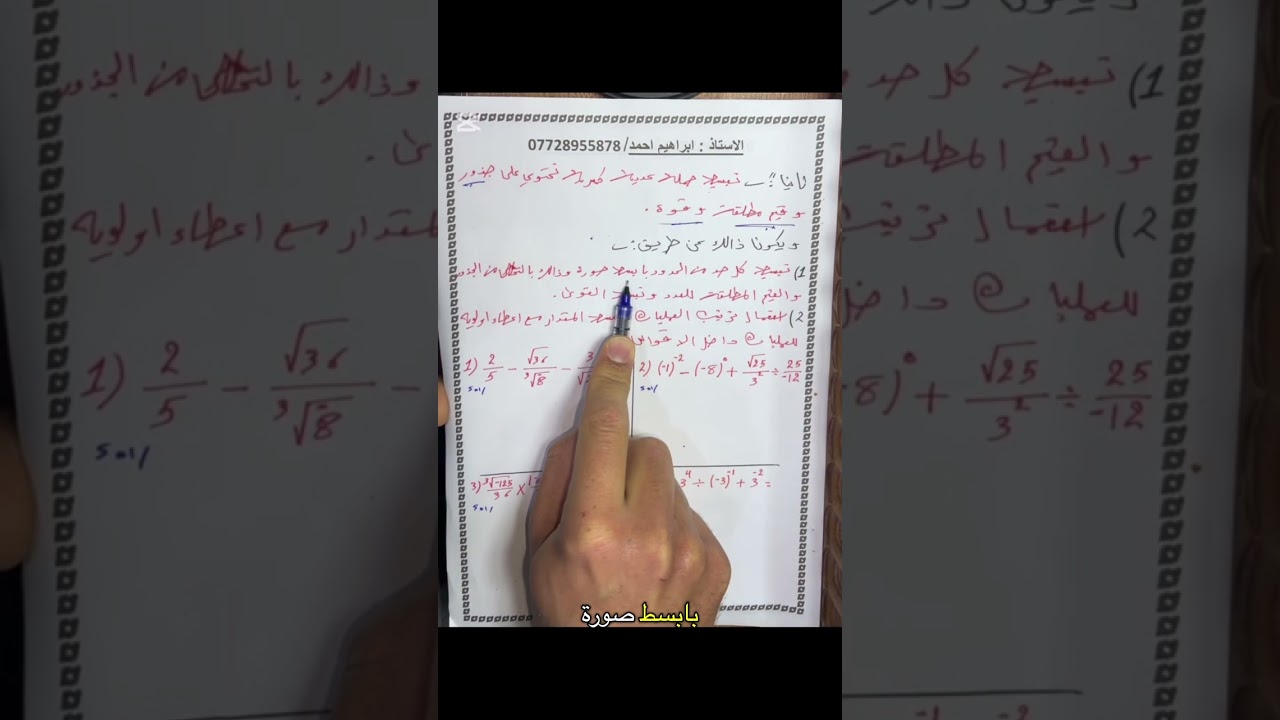 الاستاذ : ابراهيم احمد/ 07728955878
ثانيا :- تبسيط جملة عددية كسرية تحتوي على جذور
وقيم مطلقة وقوة .
ويكون ذالك عن طريق :-
1) تبسيط كل حد من الحدود بابسط صورة وذالك بالتخلص من الجذور
والقيم المطلقة للعدد القوى .
2) استعمال ترتيب العمليات المقدار مع اعطاء اولوية
للعمليات داخل الاقواس
1) 2/5 − √36/³√8 − 3
sol/
2) (-1)⁻² − (-8)⁰ + √25/3² ÷ 25/-12
sol/
3) ³√-125/36 ×
sol/
3⁴ ÷ (-3)⁻¹ + 3⁻² =
بابسط صورة